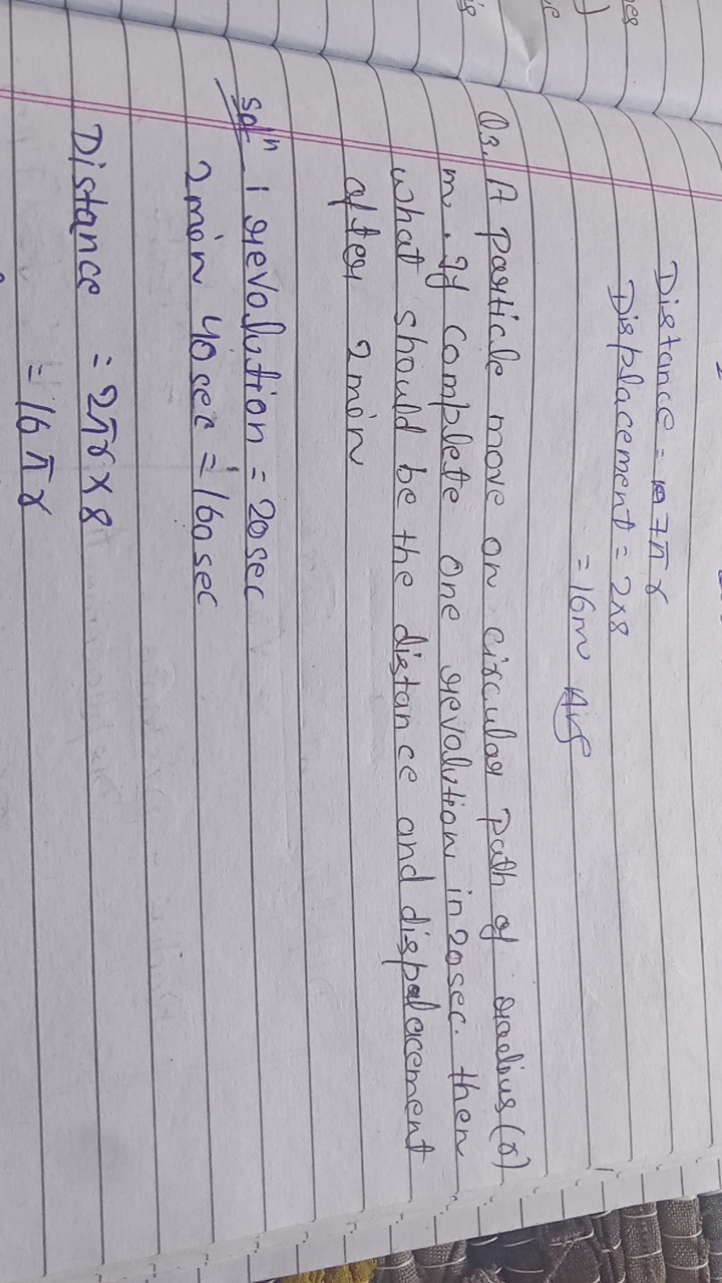 Distance = 7πr
Displacement = 2×8
= 16m Ans
Q3. A particle move on circular path of radius (r)
m. If complete one revolution in 20sec. then
what should be the distance and dispalacement
after 2min
Solⁿ 1 revolution = 20sec
2min 40sec = 160sec
Distance = 2πr×8
= 16πr